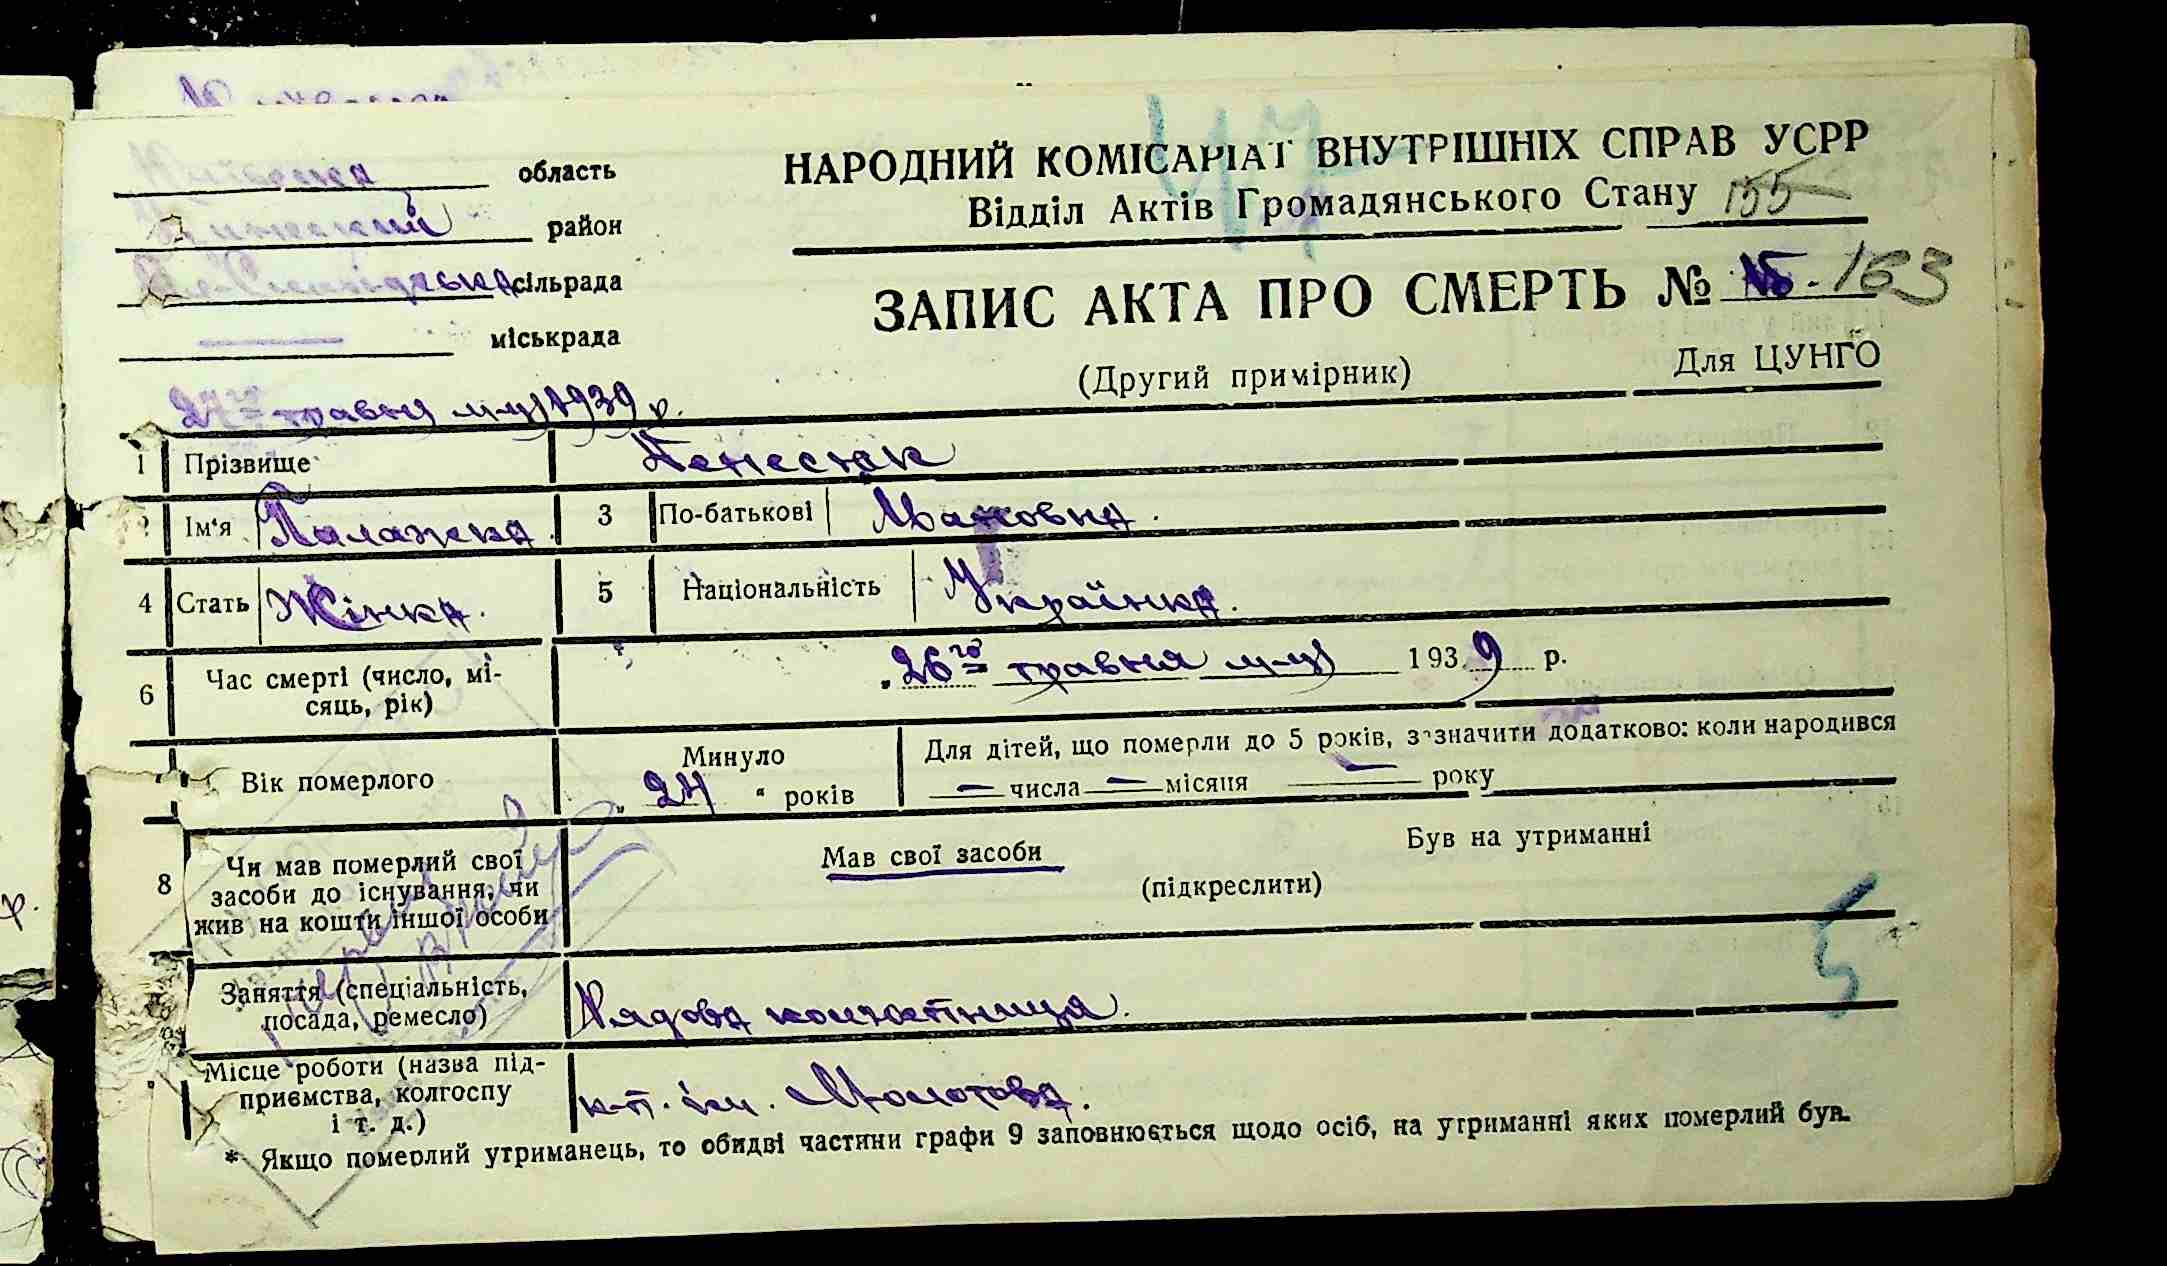 Київська область
район
сільрада
міськрада
НАРОДНИЙ КОМІСАРІАТ ВНУТРІШНІХ СПРАВ УСРР
Відділ Актів Громадянського Стану 155
ЗАПИС АКТА ПРО СМЕРТЬ № 15 - 163
(Другий примірник)
Для ЦУНГО
27го травня м-ця 1939 р.
1 Прізвище
2 Ім'я Палажка 3 По-батькові
4 Стать Жінка. 5 Національність Українка.
6 Час смерті (число, мі-
сяць, рік)
„26го травня м-ця 1939 р.
Вік померлого
Минуло
„ 24 “ років
Для дітей, що померли до 5 років, зазначити додатково: коли народився
— числа — місяця — року
8 Чи мав померлий свої
засоби до існування, чи
жив на кошти іншої особи
Мав свої засоби
Був на утриманні
(підкреслити)
5
Заняття (спеціальність,
посада, ремесло)
Рядова колгоспниця.
Місце роботи (назва під-
приємства, колгоспу
і т. д.)
к-п. ім. Молотова.
* Якщо померлий утриманець, то обидві частини графи 9 заповнюється щодо осіб, на утриманні яких померлий був.